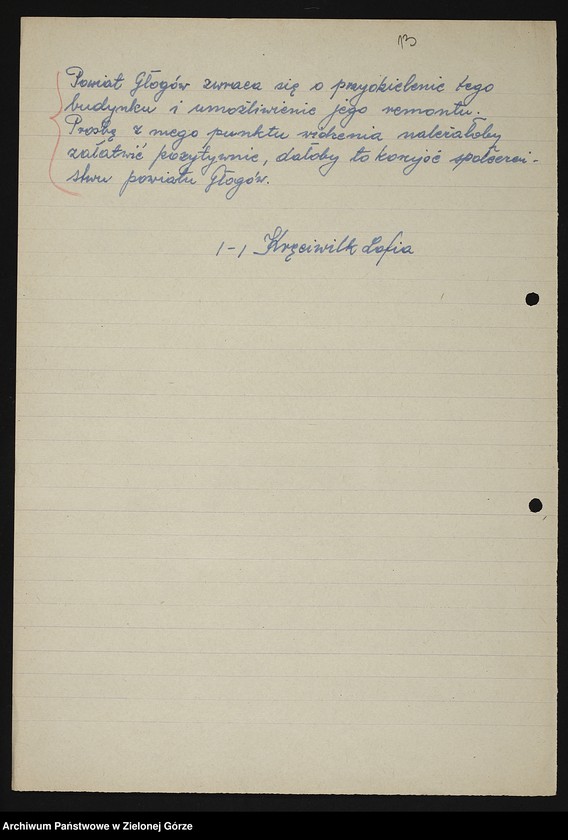 13
Powiat Głogów zwraca się o przydzielenie tego
budynku i umożliwienie jego remontu.
Prosbę z mego punktu widzenia należałoby
załatwić pozytywnie, dałoby to korzyść społeczeń-
stwu powiatu Głogów.
/-/ Kręciwilk Zofia
Archiwum Państwowe w Zielonej Górze